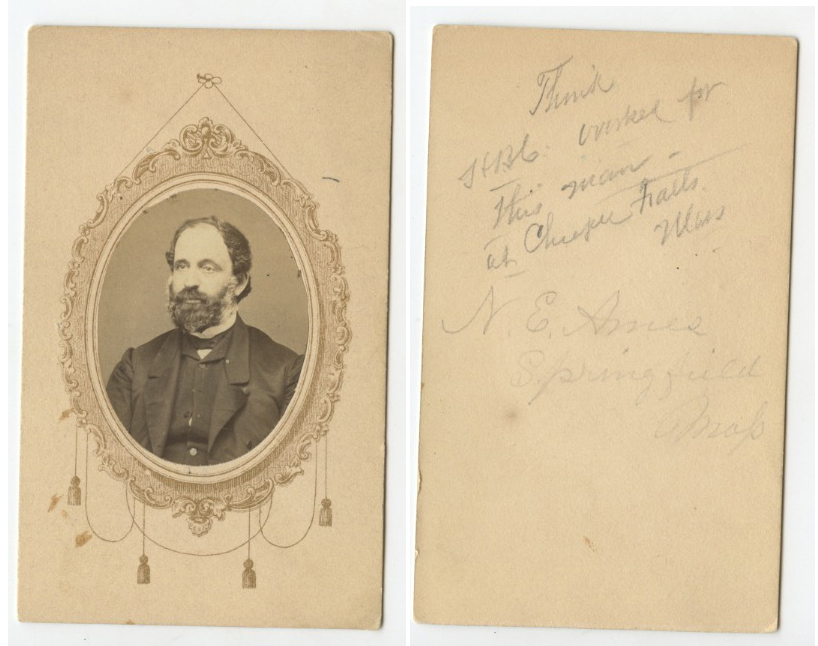 Think
HBC. worked for
this man -
at Chicopee Falls.
Mass
N. E. Ames
Springfield
Mass